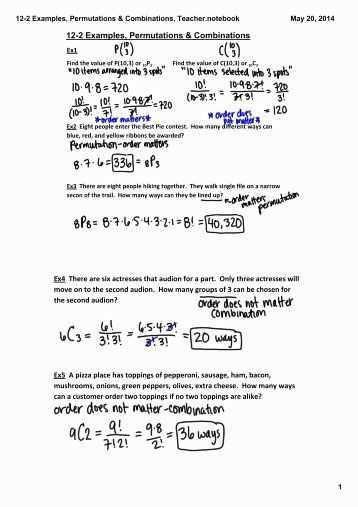 12-2 Examples, Permutations & Combinations, Teacher.notebook May 20, 2014
12-2 Examples, Permutations & Combinations
Ex1 P(10 3) C(10 3)
Find the value of P(10,3) or 10P3 Find the value of C(10,3) or 10C3
"10 items arranged into 3 spots" "10 items selected into 3 spots"
10·9·8 = 720 10!/(10-3)!·3! = 10·9·8·7!/7!·3! = 720/3!
10!/(10-3)! = 10!/7! = 10·9·8·7!/7! = 720 = 120
*order matters* *order does not matter*
Ex2 Eight people enter the Best Pie contest. How many different ways can
blue, red, and yellow ribbons be awarded?
Permutation-order matters
8·7·6 = 336 = 8P3
Ex3 There are eight people hiking together. They walk single file on a narrow
secon of the trail. How many ways can they be lined up? -order matters permutation
8P8 = 8·7·6·5·4·3·2·1 = 8! = 40,320
Ex4 There are six actresses that audion for a part. Only three actresses will
move on to the second audion. How many groups of 3 can be chosen for
the second audion? order does not matter
combination
6C3 = 6!/3!3! = 6·5·4·3!/3!·3! = 20 ways
Ex5 A pizza place has toppings of pepperoni, sausage, ham, bacon,
mushrooms, onions, green peppers, olives, extra cheese. How many ways
can a customer order two toppings if no two toppings are alike?
order does not matter -combination
9C2 = 9!/7!2! = 9·8/2! = 36 ways
1